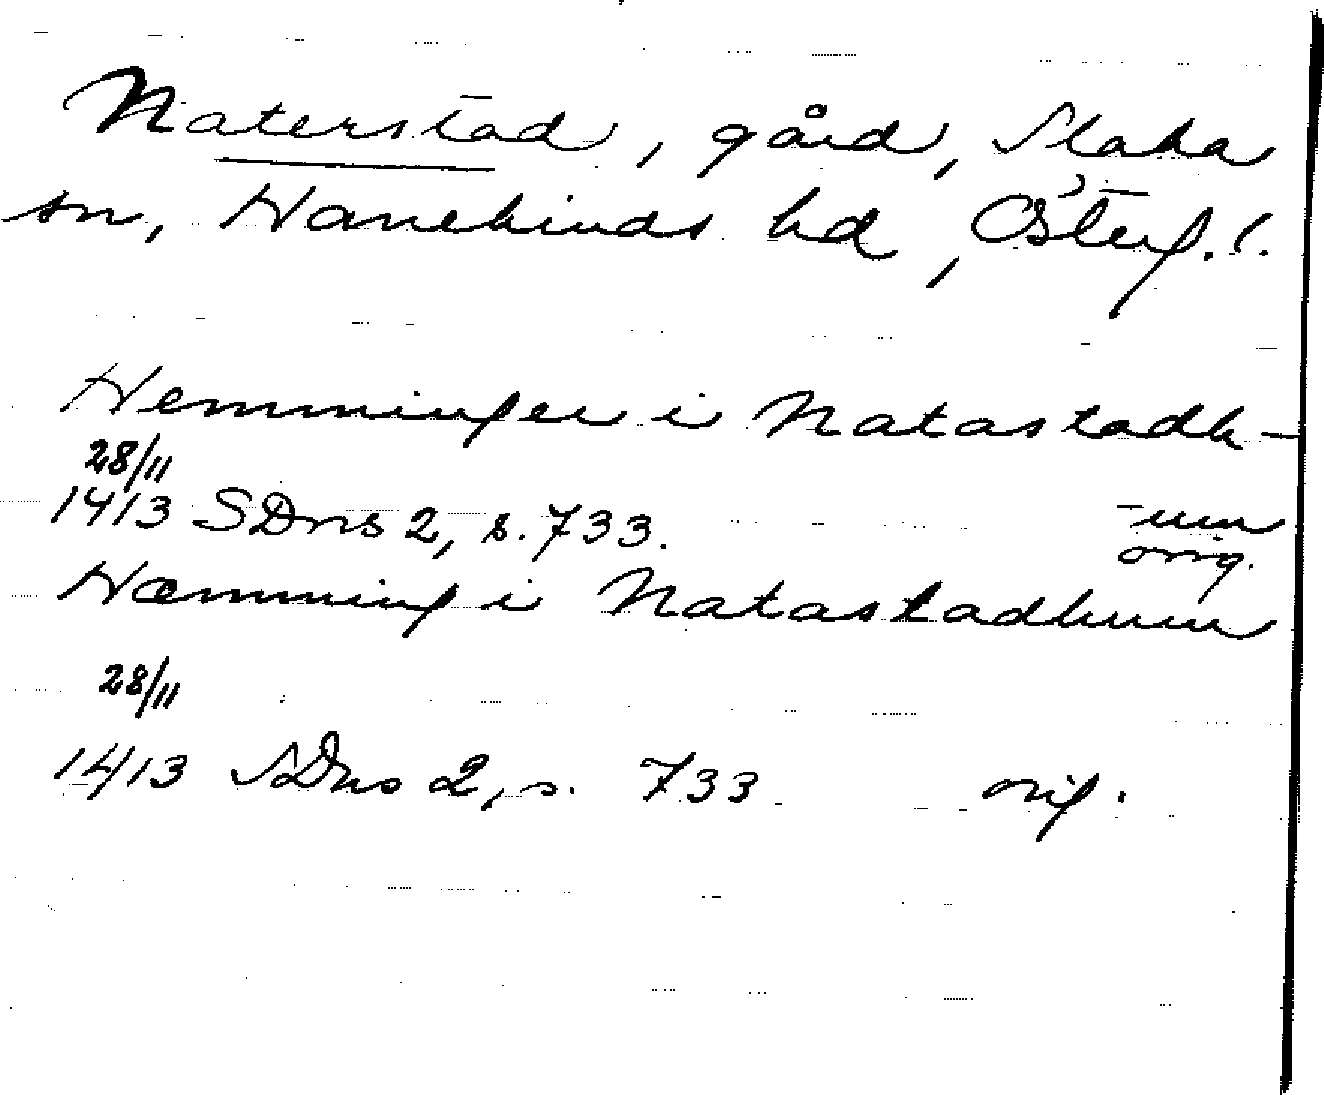 Naterstad, gård, Slaka
sn, Hanekinds hd, Österg.l.
Hemminger i Natastadh-
-um
28/11
1413 SDns 2, s. 733.
orig.
Hæmming i Natastadhum
28/11
1413 SDns 2, s. 733 orig.